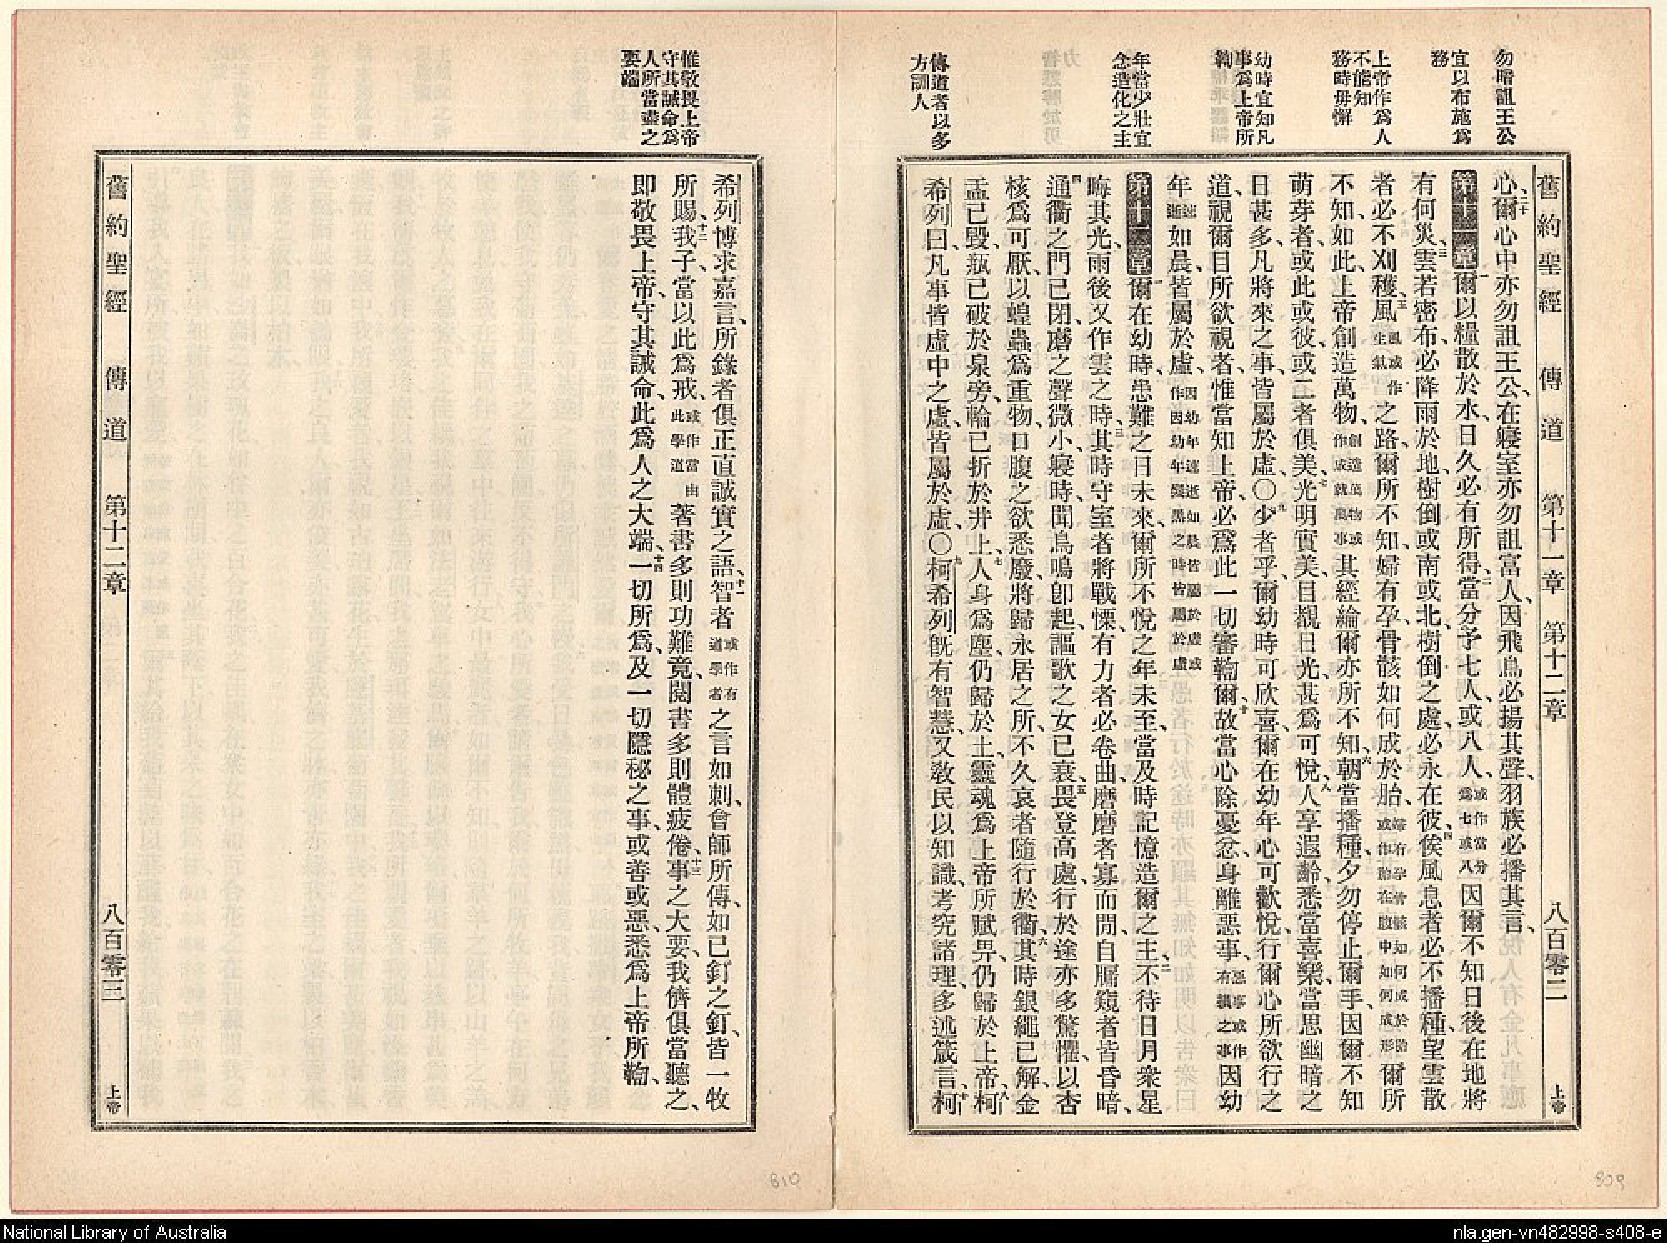 勿暗詛王公
宜以布施為
務
上帝作為人
不能知
務時毋懈
幼時宜知凡
事為上帝所
鞫
年當少壯宜
念造化之主
傳道者以多
方訓人
舊約聖經 傳道 第十一章 第十二章 八百零二 上帝
心、二十爾心中亦勿詛王公、在寢室亦勿詛富人、因飛鳥必揚其聲、羽族必播其言、
第十一章 一爾以糧散於水、日久必有所得、二當分予七人、或八人、或作當分為七或八因爾不知日後在地將
有何災、三雲若密布、必降雨於地、樹倒或南或北、樹倒之處、必永在彼、四俟風息者必不播種、望雲散
者必不刈穫、五風風或作生氣之路、爾所不知、婦有孕、骨骸如何成於胎、婦有孕骨骸如何成於胎或作胎在腹中如何成形爾所
不知、如此、上帝創造萬物、創造萬物或作成就萬事其經綸爾亦所不知、六朝當播種、夕勿停止爾手、因爾不知
萌芽者、或此或彼、或二者俱美、七光明實美、目覩日光、甚為可悅、八人享遐齡、悉當喜樂、當思幽暗之
日甚多、凡將來之事、皆屬於虛、○九少者乎、爾幼時可欣喜、爾在幼年、心可歡悅、行爾心所欲行之
道、視爾目所欲視者、惟當知上帝必為此一切審鞫爾、十故當心除憂忿、身離惡事、惡事或作有輒之事因幼
年速逝如晨、皆屬於虛、因幼年速逝如晨皆屬於虛或作因幼年與黑之時皆屬於虛
第十二章 一爾在幼時、患難之日未來、爾所不悅之年未至、當及時記憶造爾之主、二不待日月衆星
晦其光、雨後又作雲之時、三其時守室者將戰慄、有力者必卷曲、磨磨者寡而閒、自牖窺者皆昏暗、
四通衢之門已閉、磨之聲微小、寢時聞鳥鳴卽起、謳歌之女已衰、五畏登高處、行於途亦多驚懼、以杏
核為可厭、以蝗蟲為重物、口腹之欲悉廢、將歸永居之所、不久哀者隨行於衢、六其時銀繩已解、金
盂已毀、瓶已破於泉旁、輪已折於井上、七人身為塵、仍歸於土、靈魂為上帝所賦畀、仍歸於上帝、八柯
希列曰、凡事皆虛中之虛、皆屬於虛、○九柯希列旣有智慧、又教民以知識、考究諸理、多述箴言、十柯
惟敬畏上帝
守其誡命為
人所當盡之
要端
希列博求嘉言、所錄者俱正直誠實之語、十一智者或作有道學者之言如刺、會師所傳、如已釘之釘、皆一牧
所賜、十二我子、當以此為戒、或作當由此學道著書多則功難竟、閱書多則體疲倦、十三事之大要、我儕俱當聽之、
卽敬畏上帝、守其誡命、此為人之大端、十四一切所為、及一切隱秘之事、或善或惡、悉為上帝所鞫、
舊約聖經 傳道 第十二章 八百零三 上帝
810
809
National Library of Australia
nla.gen-vn482998-s408-e